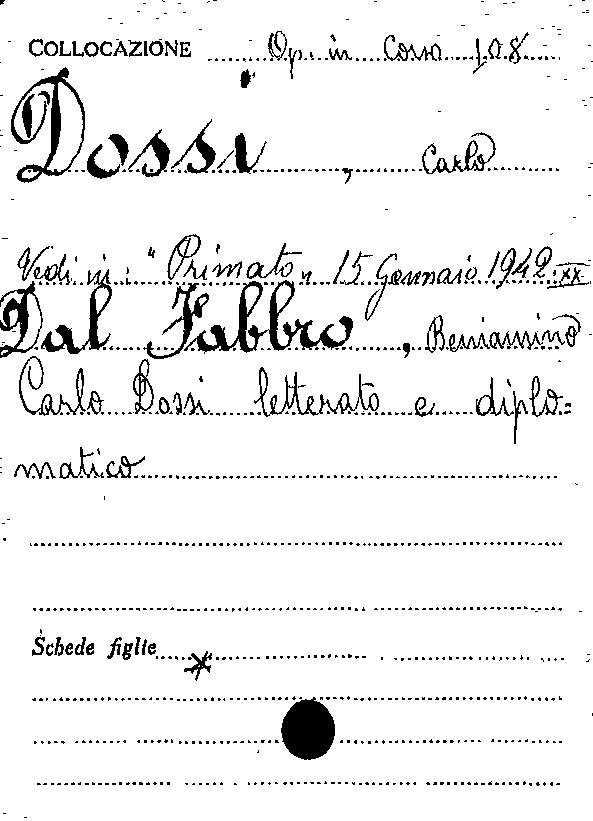 COLLOCAZIONE Op. in Corso 108
Dossi, Carlo
Vedi in: "Primato„ 15 Gennaio 1942.XX
Dal Fabbro, Beniamino
Carlo Dossi letterato e diplo=
matico
Schede figlie